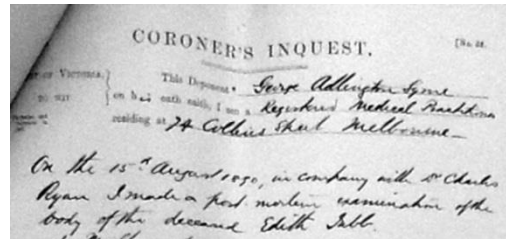 CORONER'S INQUEST.
[No. 22.
OF VICTORIA,
TO WIT
This Deponent George Adlington Syme
on h oath saith, I am a Registered Medical Practitioner
residing at 74 Collins Street Melbourne
On the 15th August 1890, in company with Dr Charles
Ryan I made a post mortem examination of the
body of the deceased Edith